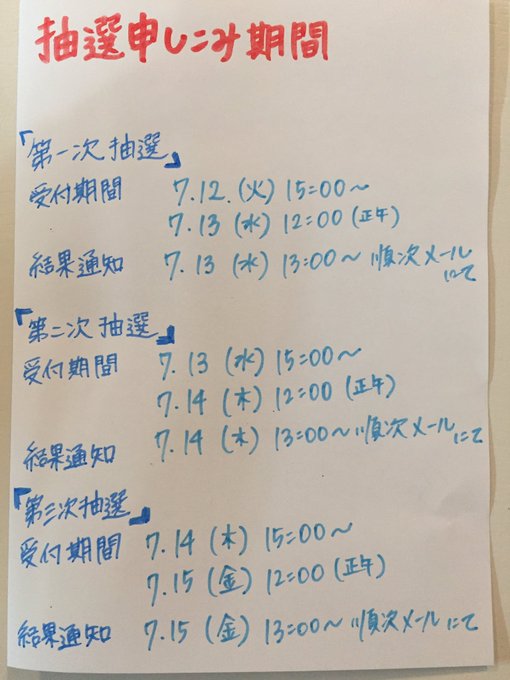 抽選申しこみ期間
「第一次抽選」
受付期間 7.12.(火) 15:00〜
7.13 (水) 12:00 (正午)
結果通知 7.13 (水) 13:00〜 順次メール
にて
「第二次抽選」
受付期間 7.13 (水) 15:00〜
7.14 (木) 12:00 (正午)
結果通知 7.14 (木) 13:00〜 順次メールにて
「第三次抽選」
受付期間 7.14 (木) 15:00〜
7.15 (金) 12:00 (正午)
結果通知 7.15 (金) 13:00〜 順次メールにて